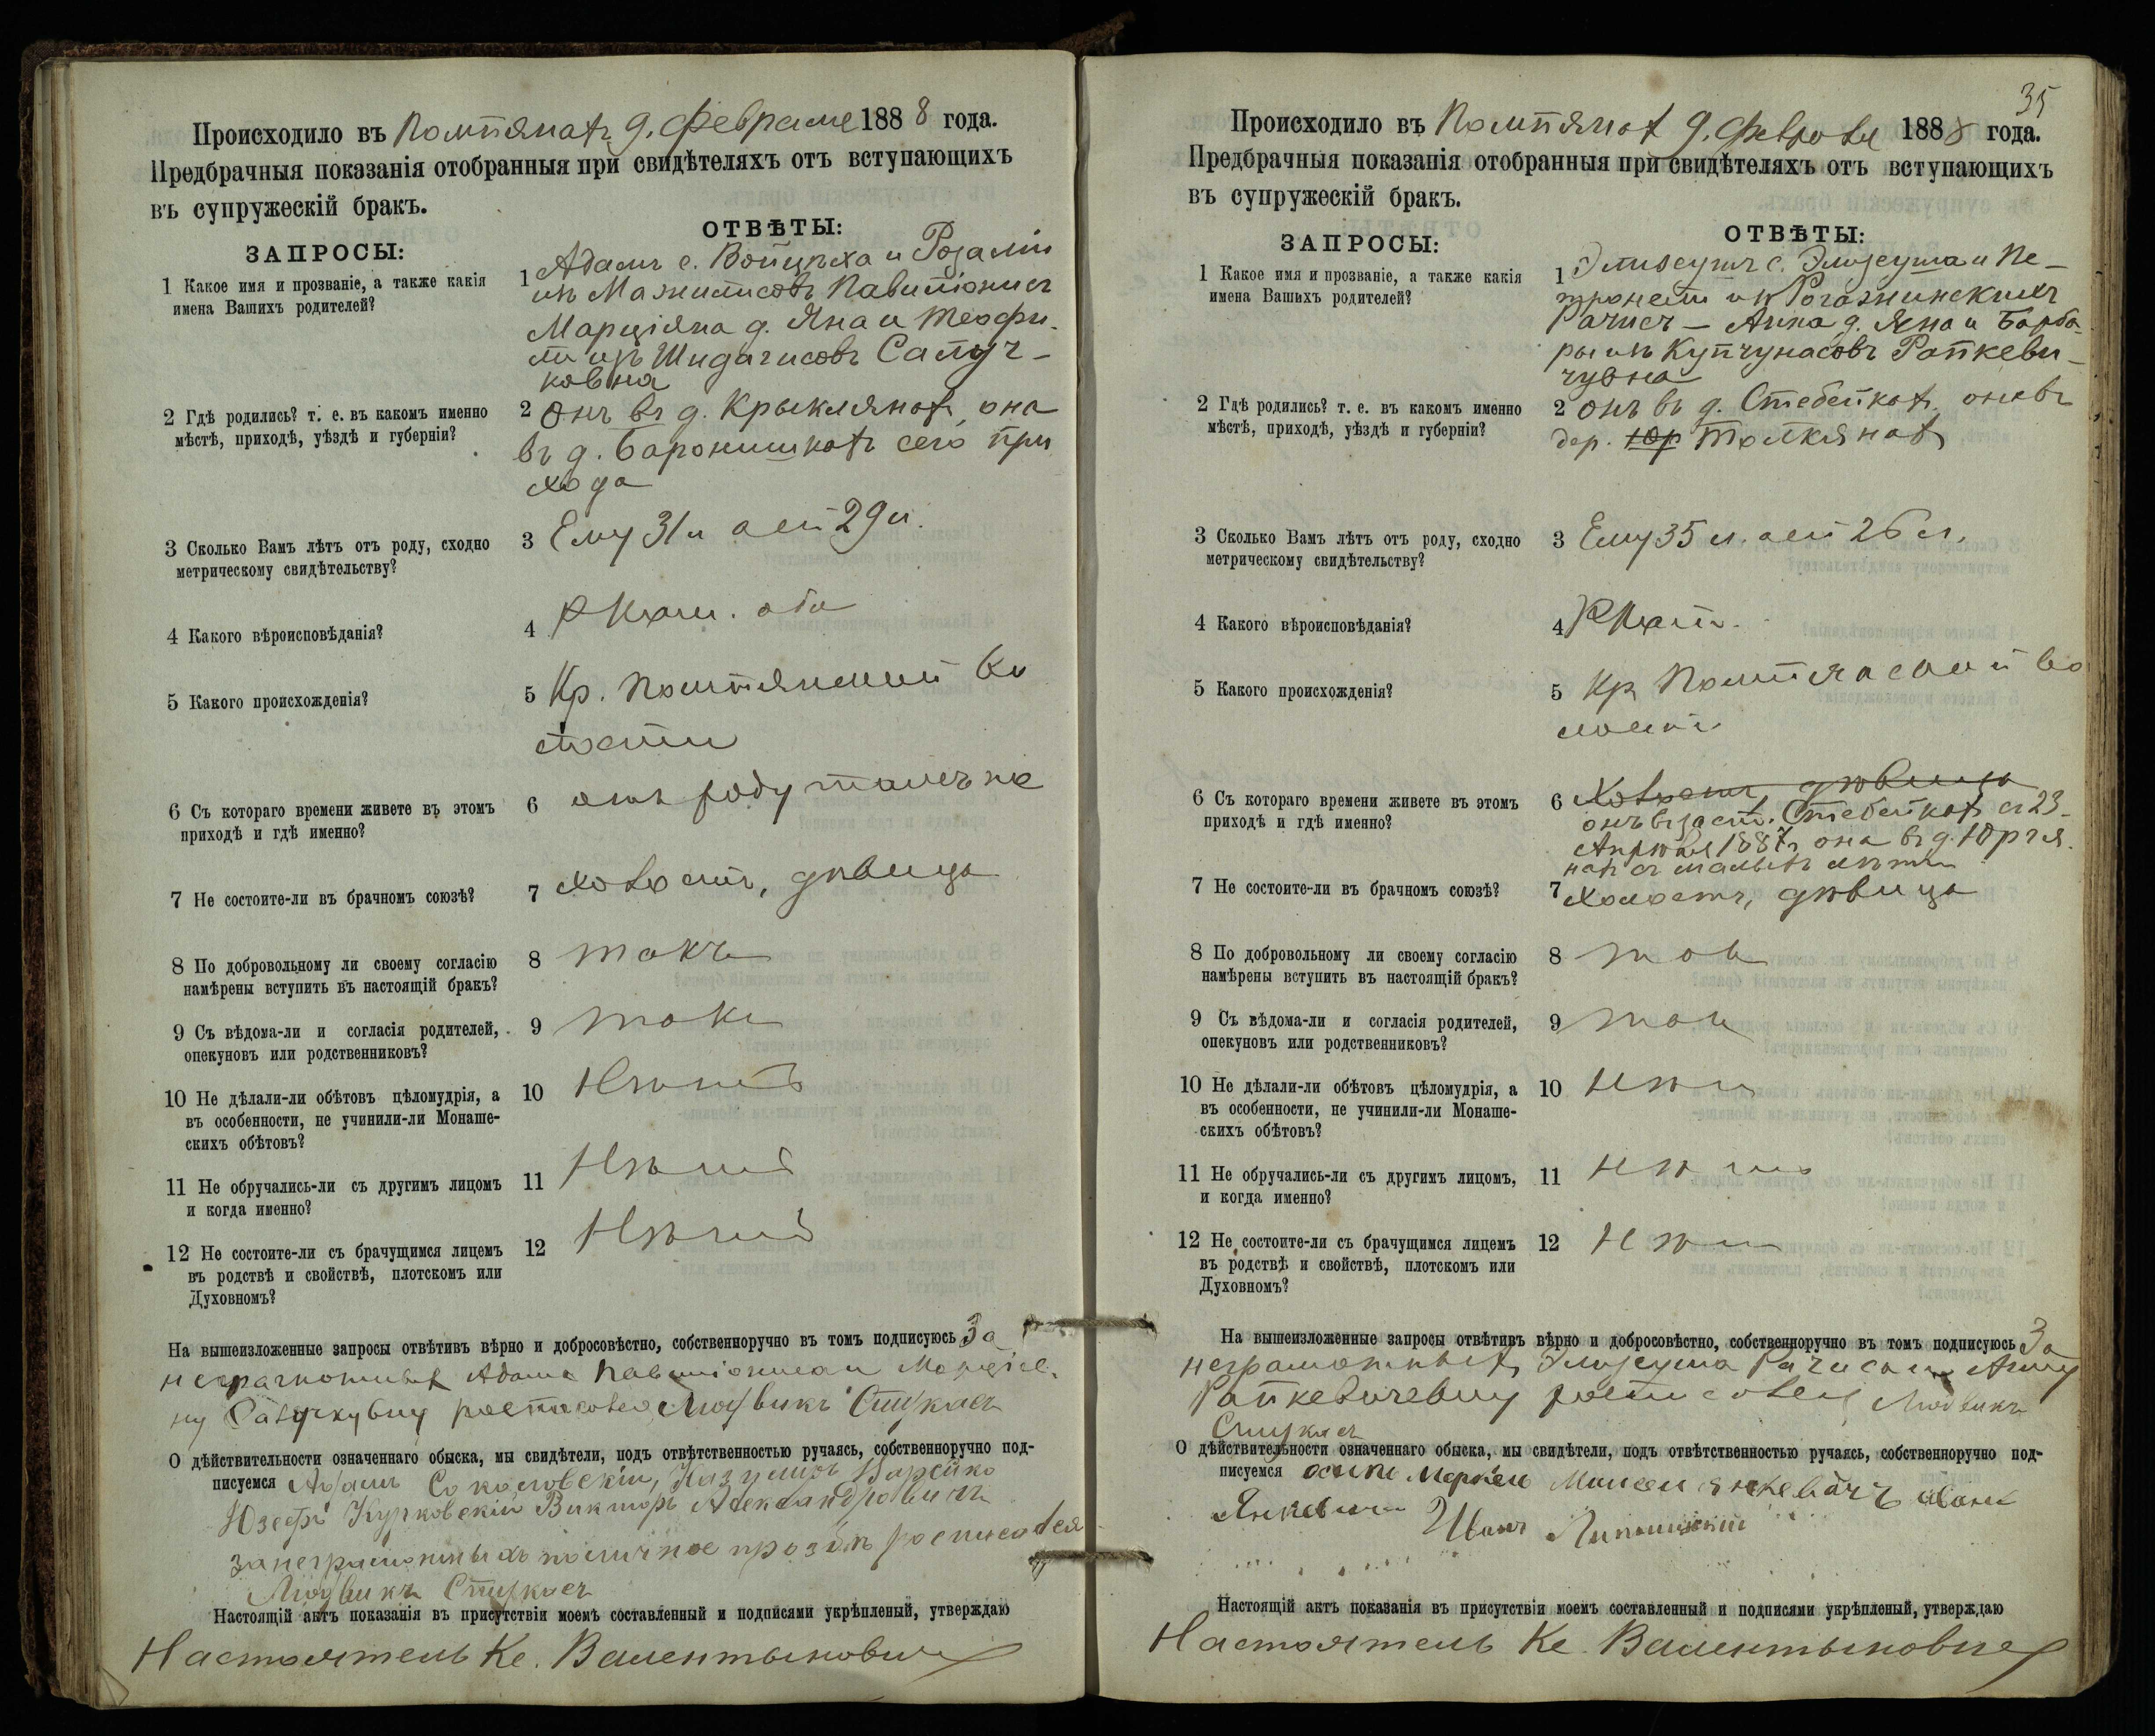 Происходило въ Помпянах 9. Февраля 1888 года.
Предбрачныя показанія отобранныя при свидѣтеляхъ отъ вступающихъ
въ супружескій бракъ.
ЗАПРОСЫ:
ОТВѢТЫ:
1 Какое имя и прозваніе, а также какія
имена Вашихъ родителей?
1 Адамъ с. Войцѣха и Розаліи
изъ Мажитисовъ
Марціяна д. Яна и Теофи-
ли изъ Шидагисовъ
2 Гдѣ родились? т. е. въ какомъ именно
мѣстѣ, приходѣ, уѣздѣ и губерніи?
2 Онъ въ д. Крыклянах, она
въ д. Баронишках сего при
хода
3 Сколько Вамъ лѣтъ отъ роду, сходно
метрическому свидѣтельству?
3 Ему 31 л а ей 29 л.
4 Какого вѣроисповѣданія?
4 Р Кат. оба
5 Какого происхожденія?
5 Кр. Помпянской во
лости
6 Съ котораго времени живете въ этомъ
приходѣ и гдѣ именно?
6 отъ роду тамъ же
7 Не состоите-ли въ брачномъ союзѣ?
7 Холостъ, дѣвица
8 По добровольному ли своему согласію
намѣрены вступить въ настоящій бракъ?
8 такъ
9 Съ вѣдома-ли и согласія родителей,
опекуновъ или родственниковъ?
9 такъ
10 Не дѣлали-ли обѣтовъ цѣломудрія, а
въ особенности, не учинили-ли Монаше-
скихъ обѣтовъ?
10 Нѣтъ
11 Не обручались-ли съ другимъ лицомъ
и когда именно?
11 Нѣтъ
12 Не состоите-ли съ брачущимся лицемъ
въ родствѣ и свойствѣ, плотскомъ или
Духовномъ?
12 Нѣтъ
На вышеизложенные запросы отвѣтивъ вѣрно и добросовѣстно, собственноручно въ томъ подписуюсь За
неграмотных Адама
Людвикъ Стукасъ
О дѣйствительности означеннаго обыска, мы свидѣтели, подъ отвѣтственностью ручаясь, собственноручно под-
писуемся Адамъ Соколовскій,
Юзефъ Курковскій Викторъ Александровичъ
за неграмотныхъ по личное прозбѣ росписался
Людвикъ Стукасъ
Настоящій актъ показанія въ присутствіи моемъ составленный и подписями укрѣпленый, утверждаю
Настоятель Кс. Валентыновичъ
35
Происходило въ Помпянах 9. Февраля 1888 года.
Предбрачныя показанія отобранныя при свидѣтеляхъ отъ вступающихъ
въ супружескій бракъ.
ЗАПРОСЫ:
ОТВѢТЫ:
1 Какое имя и прозваніе, а также какія
имена Вашихъ родителей?
1 Элизеушъ с. Элизеуша и Пе-
тронели изъ Рогажинскихъ
Рачисъ — Анна д. Яна и Барба-
ры изъ Купчунасовъ Рапкеви-
чувна
2 Гдѣ родились? т. е. въ какомъ именно
мѣстѣ, приходѣ, уѣздѣ и губерніи?
2 онъ въ д. Стебейках она въ
дер. Юр Толкянах
3 Сколько Вамъ лѣтъ отъ роду, сходно
метрическому свидѣтельству?
3 Ему 35 л. а ей 26 л.
4 Какого вѣроисповѣданія?
4 Р Кат.
5 Какого происхожденія?
5 Кр Помпянской во
лости
6 Съ котораго времени живете въ этомъ
приходѣ и гдѣ именно?
6 Холостъ, дѣвица
онъ въ заст. Стебейках съ 23
Апрѣля 1887 она въ д. Юргя
нах съ малых лѣтъ
7 Не состоите-ли въ брачномъ союзѣ?
7 Холостъ, дѣвица
8 По добровольному ли своему согласію
намѣрены вступить въ настоящій бракъ?
8 так
9 Съ вѣдома-ли и согласія родителей,
опекуновъ или родственниковъ?
9 так
10 Не дѣлали-ли обѣтовъ цѣломудрія, а
въ особенности, не учинили-ли Монаше-
скихъ обѣтовъ?
10 Нѣт
11 Не обручались-ли съ другимъ лицомъ,
и когда именно?
11 Нѣт
12 Не состоите-ли съ брачущимся лицемъ
въ родствѣ и свойствѣ, плотскомъ или
Духовномъ?
12 Нѣт
На вышеизложенные запросы отвѣтивъ вѣрно и добросовѣстно, собственноручно въ томъ подписуюсь За
неграмотных Элизеуша Рачиса и Анну
Рапкевичевну росписался Людвикъ
Стукасъ
О дѣйствительности означеннаго обыска, мы свидѣтели, подъ отвѣтственностью ручаясь, собственноручно под-
писуемся
Янкевичъ Иванъ
Настоящій актъ показанія въ присутствіи моемъ составленный и подписями укрѣпленый, утверждаю
Настоятель Кс. Валентыновичъ